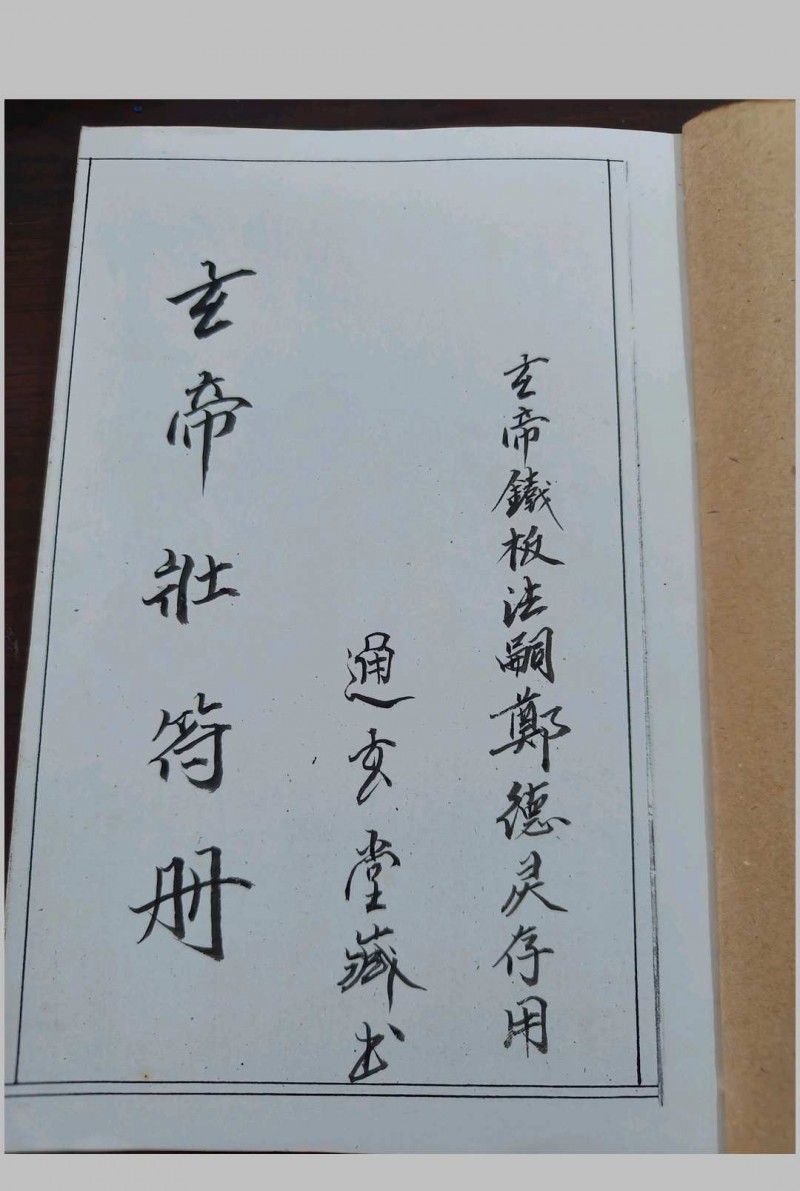 玄帝鐵板法嗣鄭德灵存用
通玄堂藏书
玄帝壯符册